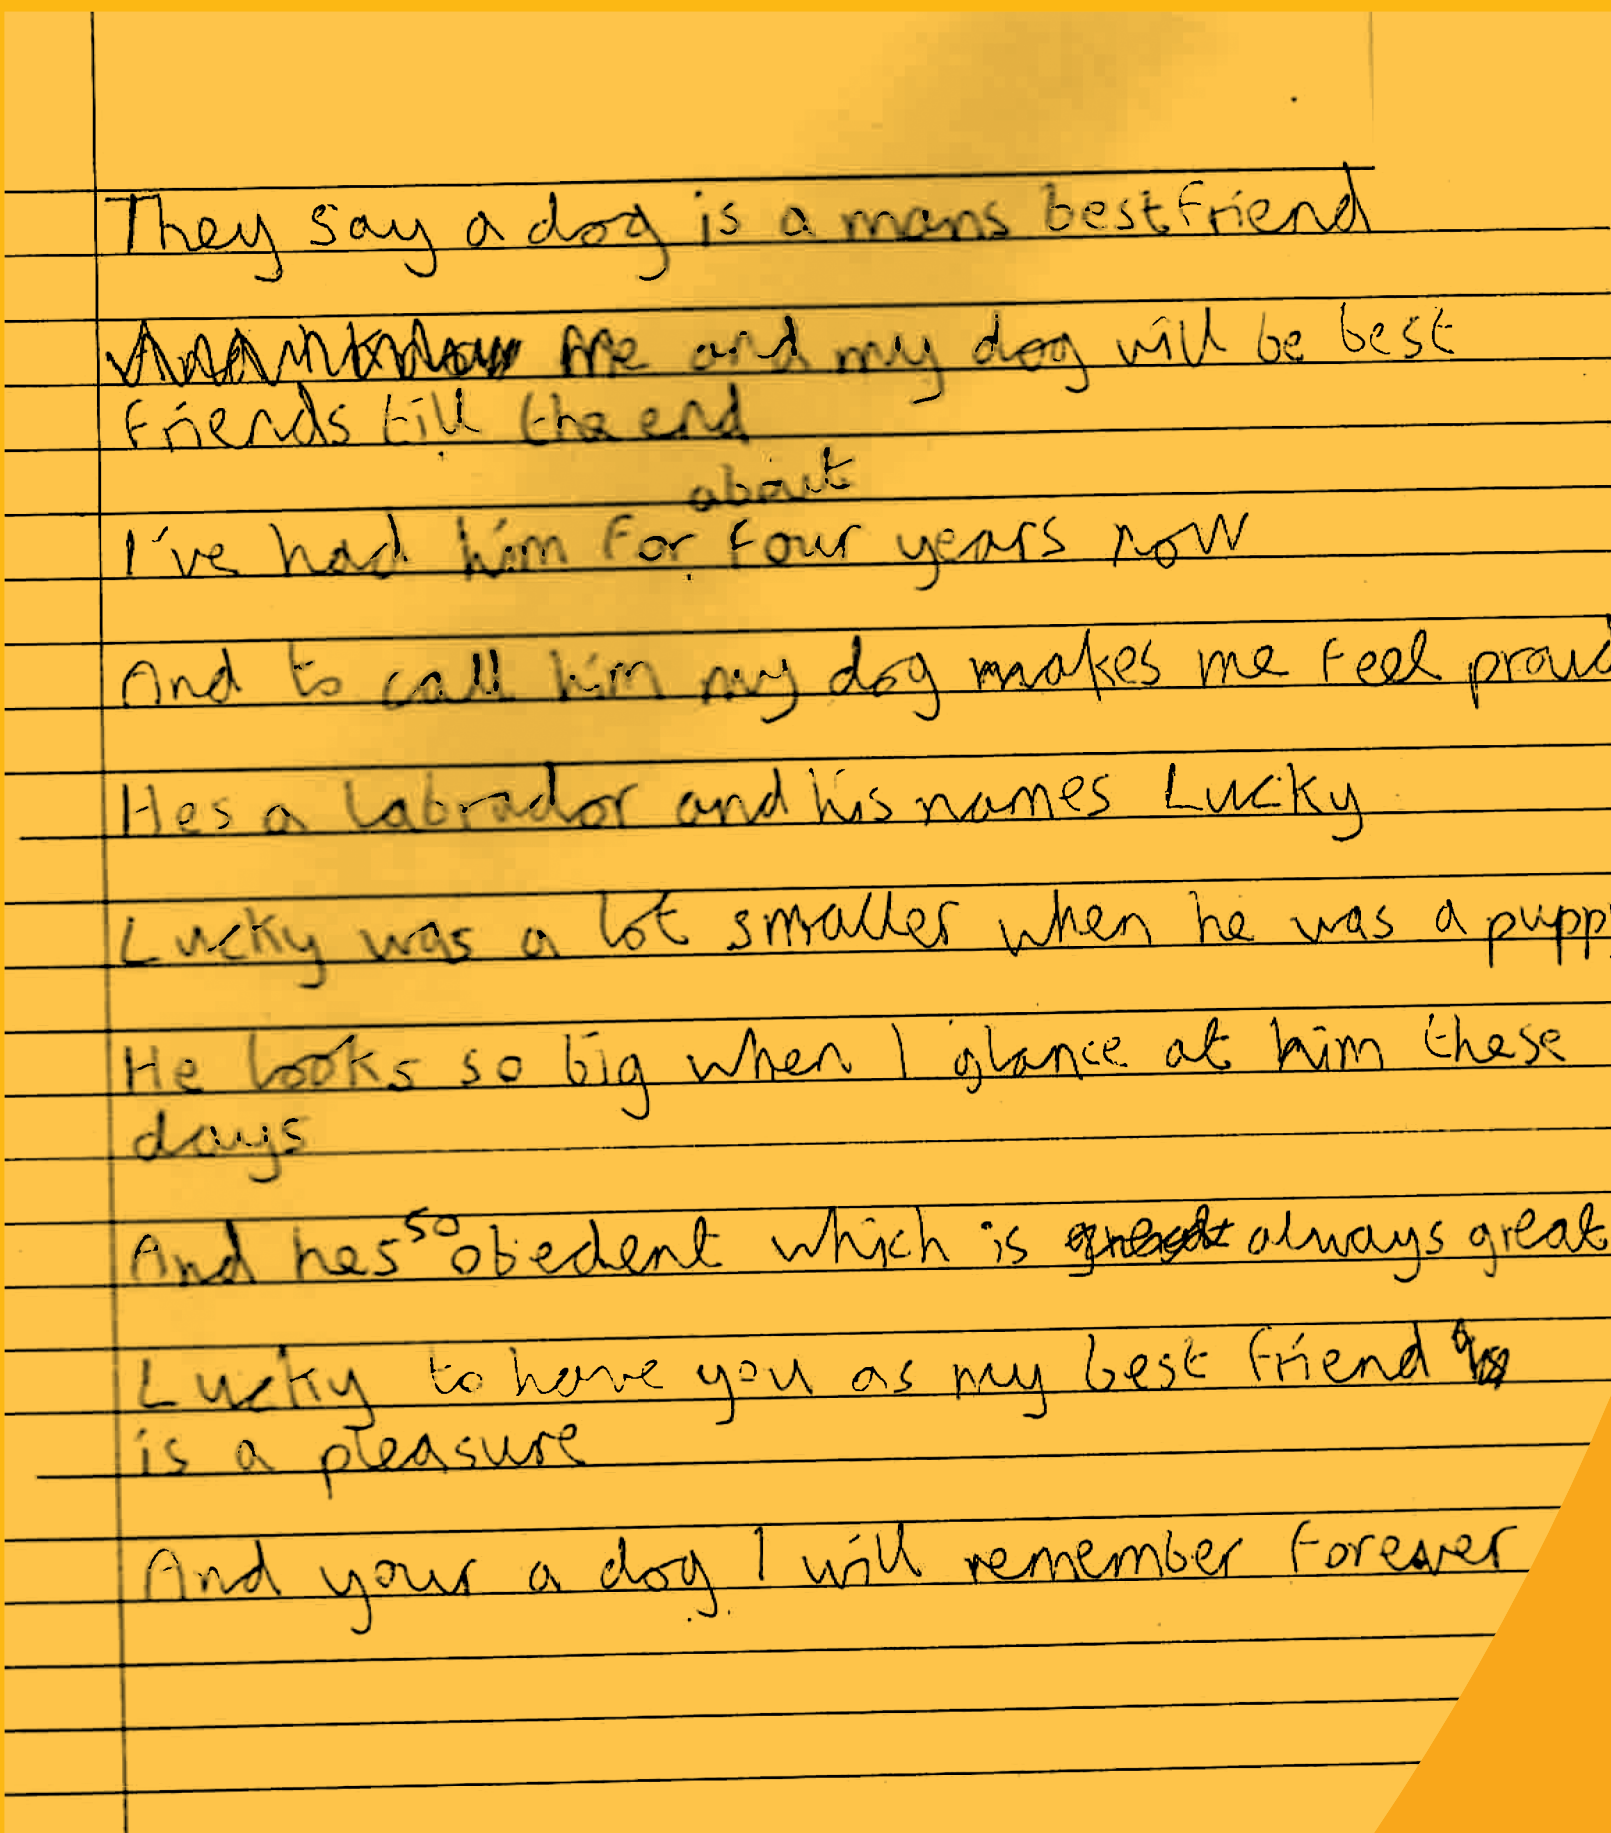 They say a dog is a mans best friend
Me and my dog will be best
friends till the end
about
I've had him for four years now
And to call him my dog makes me feel proud
Hes a labrador and his names Lucky
Lucky was a lot smaller when he was a puppy
He looks so big when I glance at him these
days
And hes so obedent which is great always great
Lucky to have you as my best friend
is a pleasure
And your a dog I will remember forever